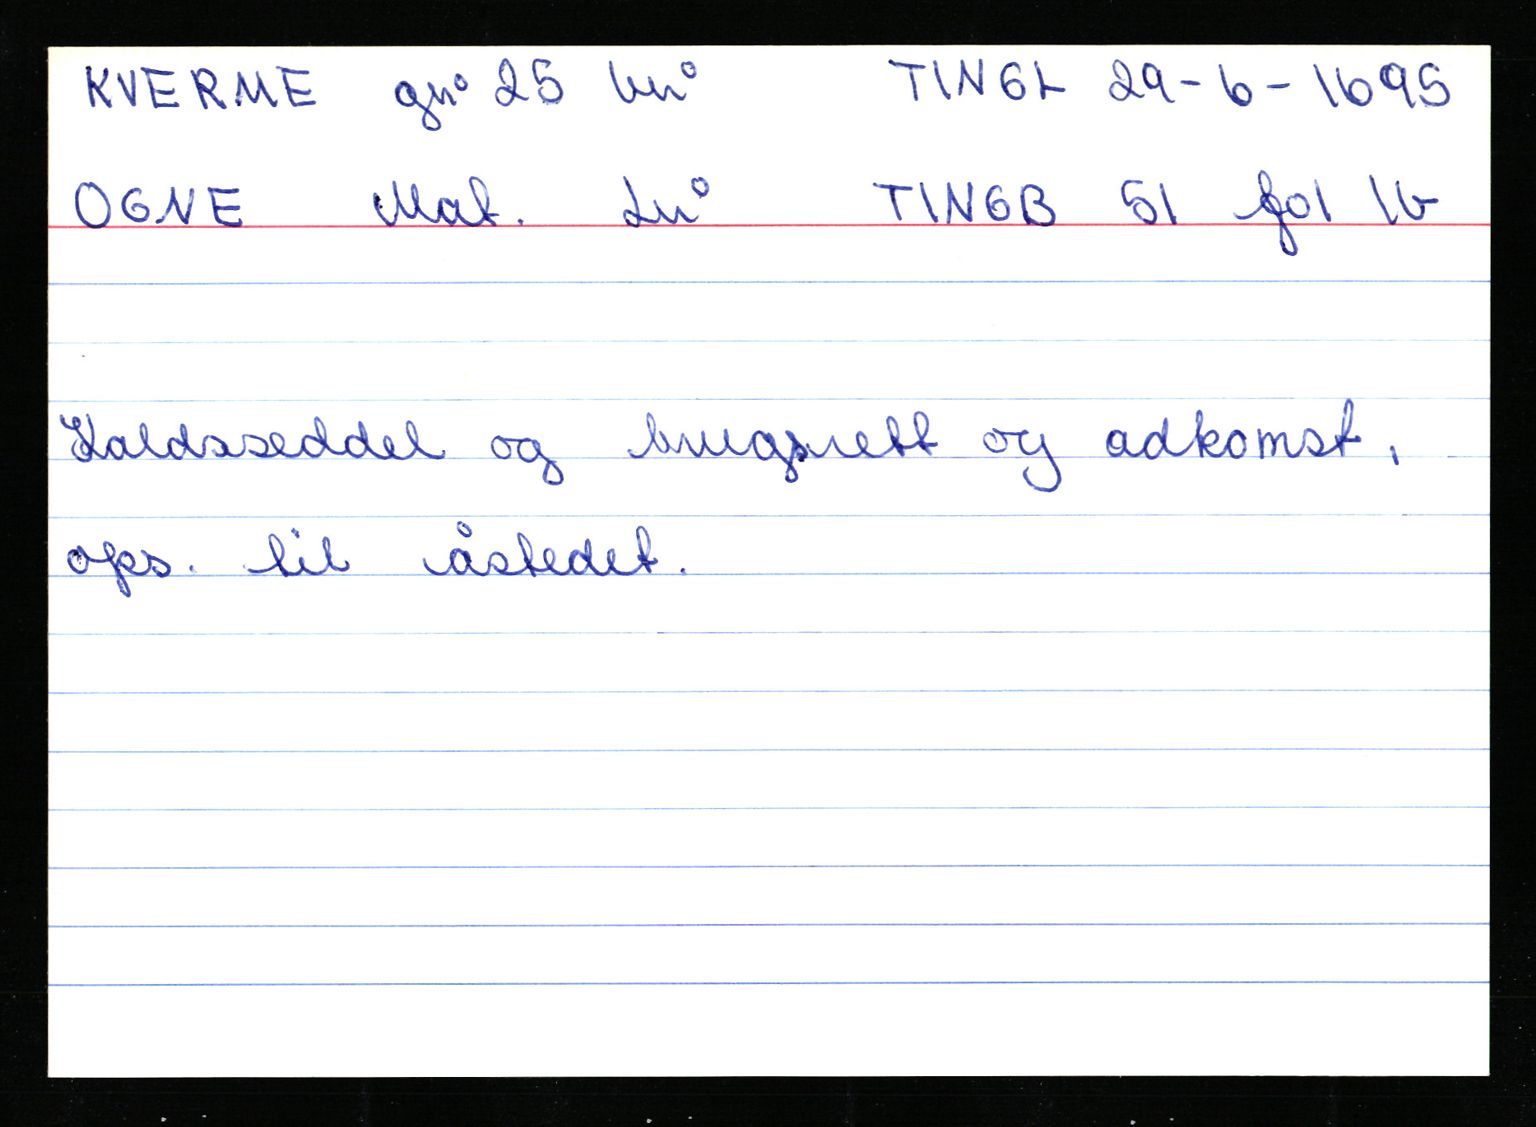 KVERME gn° 25 bn° TINGL 29-6-1695
OGNE Mat. Ln° TINGB 51 fol 1b
Kaldsseddel og brugsrett og adkomst,
ops. til åstedet.